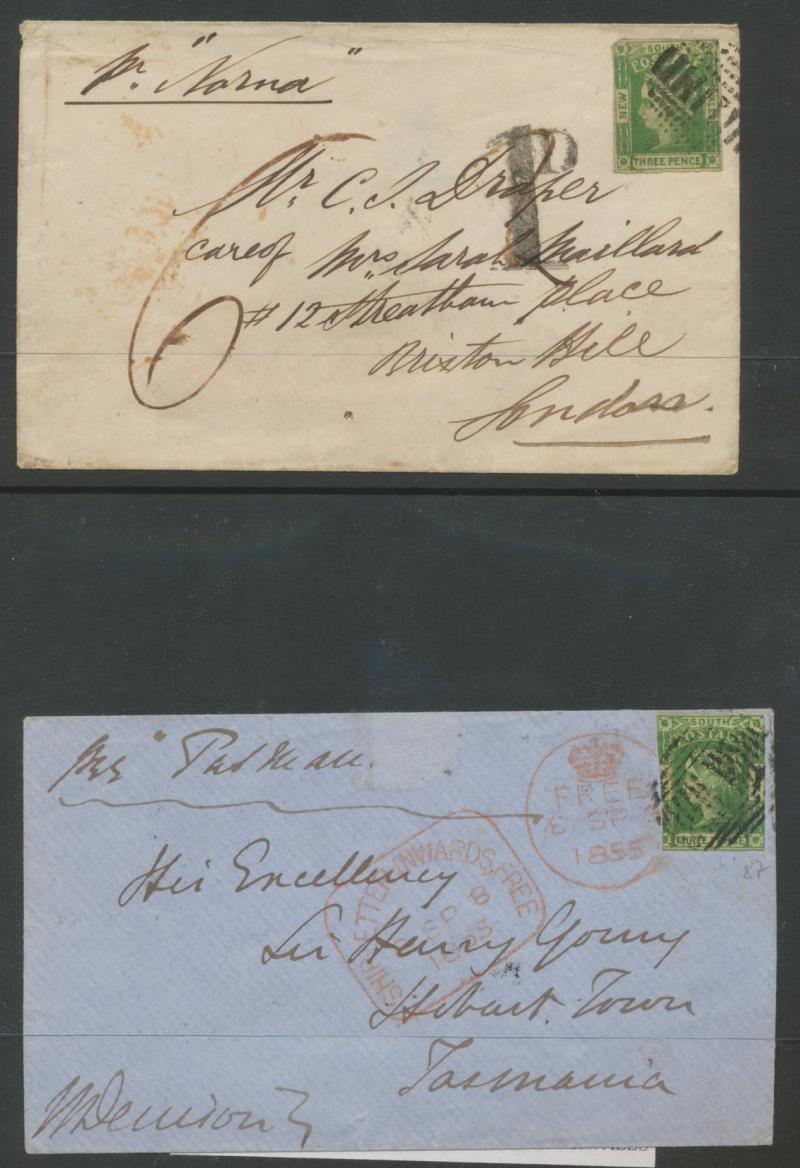 pr "Norna"
SOUTH
POSTAGE
NEW
THREE PENCE
1D
Mr. C. J. Draper
care of Mrs Sarah Maillard
# 12 Streatham Place
Brixton Hill
London.
per "Tasman
FREE
8 SP
1855
SOUTH
POSTAGE
87
SHIP LETTER INWARDS, FREE
8
SP
1855
His Excellency
Sir Henry Young
Hobart Town
Tasmania
W Denison